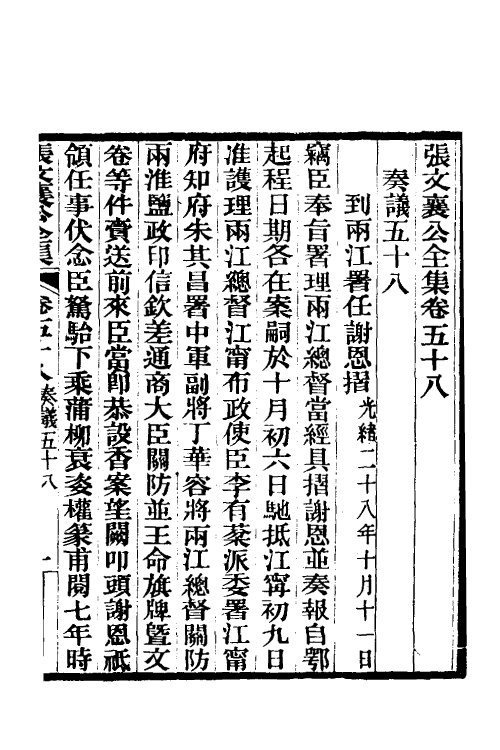 張文襄公全集卷五十八
奏議五十八
到兩江署任謝恩摺光緒二十八年十月十一日
竊臣奉旨署理兩江總督當經具摺謝恩並奏報自鄂
起程日期各在案嗣於十月初六日馳抵江甯初九日
准護理兩江總督江甯布政使臣李有棻派委署江甯
府知府朱其昌署中軍副將丁華容將兩江總督關防
兩淮鹽政印信欽差通商大臣關防並王命旗牌暨文
卷等件賫送前來臣當卽恭設香案望闕叩頭謝恩祇
領任事伏念臣駑駘下乘蒲柳衰姿權篆甫閱七年時
張文襄公全集 卷五十八 奏議五十八 一